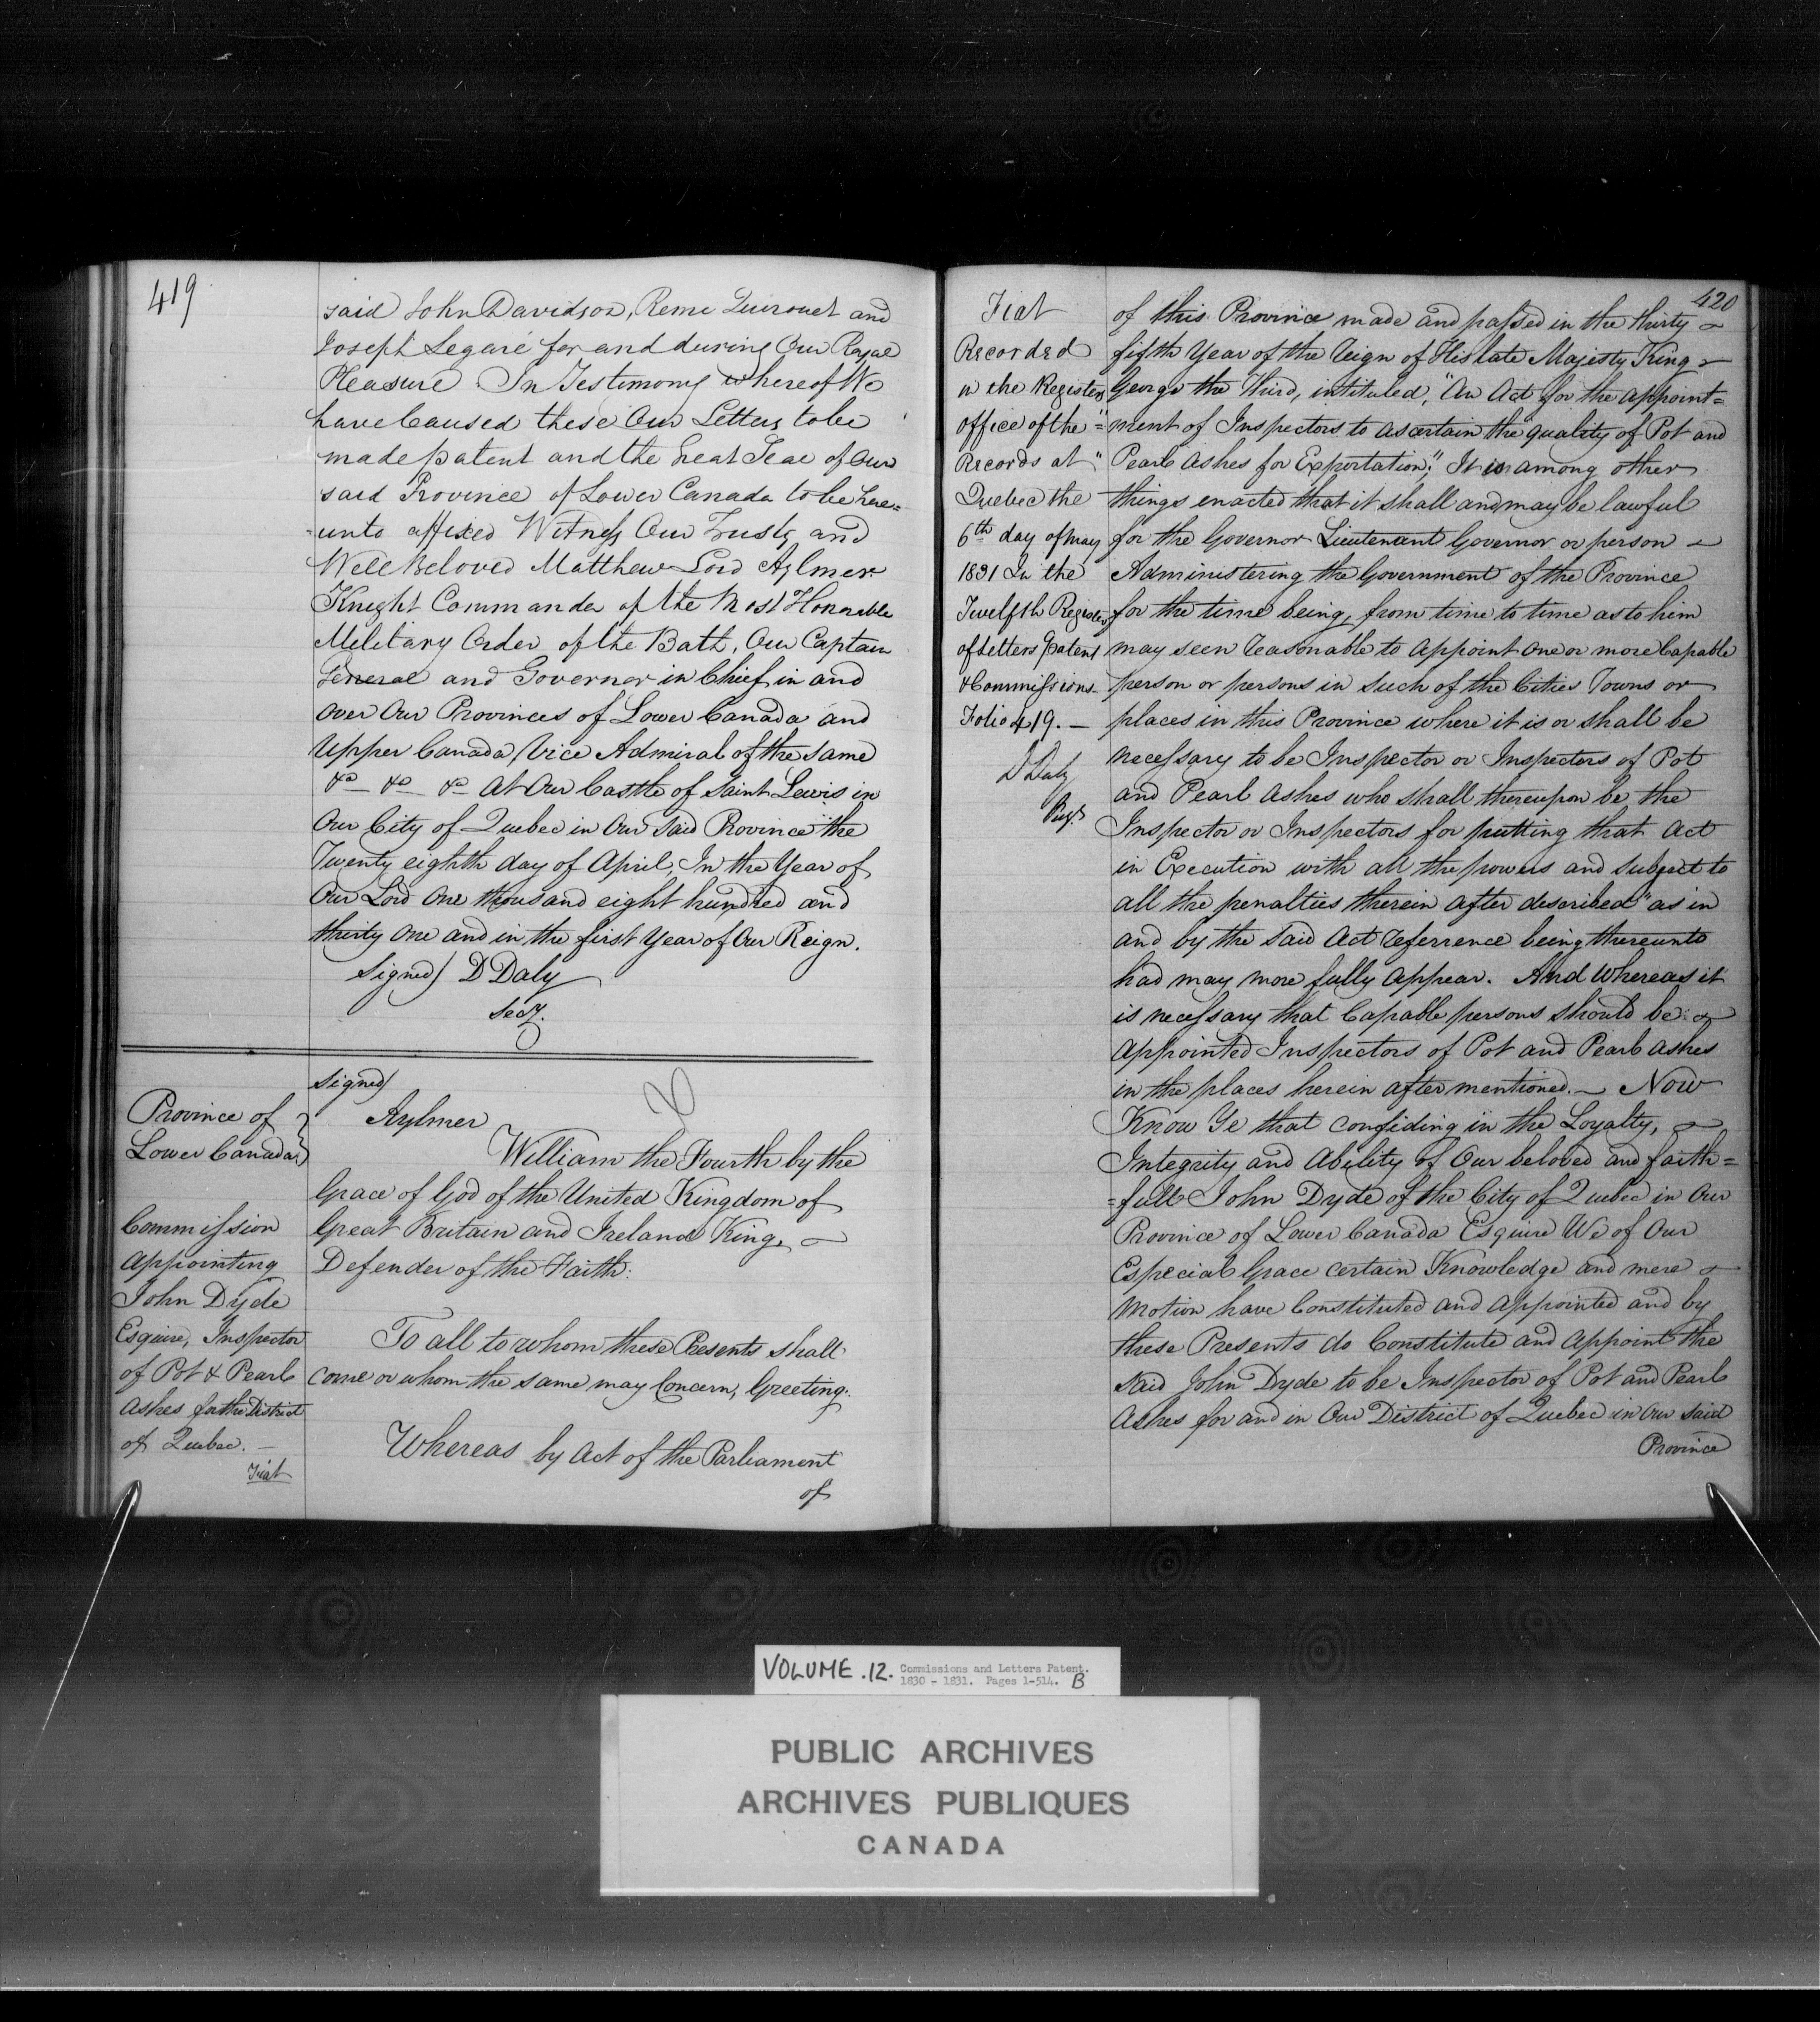 419
said John Davidson, Remi Quirouet and
Joseph Legaré for and during Our Royal
Pleasure In Testimony whereof We
have Caused these Our Letters to be
made patent and the Great Seal of Our
said Province of Lower Canada to be here=
=unto affixed Witness Our Trusty and
Well Beloved Matthew Lord Aylmer
Knight Commander of the Most Honorable
Military Order of the Bath, Our Captain
General and Governor in Chief in and
over Our Provinces of Lower Canada and
Upper Canada, Vice Admiral of the same
&a &a &a At Our Castle of Saint Lewis in
Our City of Quebec in Our said Province the
Twenty eighth day of April, In the Year of
Our Lord One thousand eight hundred and
thirty One and in the first Year of Our Reign.
Signed) D Daly
Secy.
Province of
Lower Canada
Commission
appointing
John Dyde
Esquire, Inspector
of Pot & Pearl
Ashes for the District
of Quebec. —
Fiat
Signed)
Aylmer
William the Fourth by the
Grace of God of the United Kingdom of
Great Britain and Ireland King,
Defender of the Faith:
To all to whom these Presents shall
come or whom the same may Concern, Greeting:
Whereas by Act of the Parliament
of
420
Fiat
Recorded
in the Registers
office of the
Records at
Quebec the
6th day of May
1831 In the
Twelfth Register
of Letters patent
& Commissions
Folio 419. —
D Daly
Regr
of this Province made and passed in the thirty
fifth Year of the Reign of His late Majesty King
George the Third, intituled, "An Act for the appoint=
"=ment of Inspectors to ascertain the quality of Pot and
" Pearl Ashes for Exportation," It is among other
things enacted that it shall and may be lawful
for the Governor Lieutenant Governor or person
Administering the Government of the Province
for the time being, from time to time as to him
may seem reasonable to appoint one or more Capable
person or persons in such of the Cities Towns or
places in this Province where it is or shall be
necessary to be Inspector or Inspectors of Pot
and Pearl Ashes who shall thereupon be the
Inspector or Inspectors for putting that Act
in Execution with all the powers and subject to
all the penalties therein after described" as in
and by the said Act referrence being thereunto
had may more fully appear. And Whereas it
is necessary that Capable persons should be
Appointed Inspectors of Pot and Pearl Ashes
in the places herein after mentioned. — Now
Know Ye that confiding in the Loyalty,
Integrity and Ability of Our beloved and faith=
=full John Dyde of the City of Quebec in Our
Province of Lower Canada Esquire We of Our
Especial Grace certain Knowledge and mere
Motion have Constituted and Appointed and by
these Presents do Constitute and Appoint the
said John Dyde to be Inspector of Pot and Pearl
Ashes for and in Our District of Quebec in Our said
Province
VOLUME .12. Commissions and Letters Patent.
1830 - 1831. Pages 1-514. B
PUBLIC ARCHIVES
ARCHIVES PUBLIQUES
CANADA